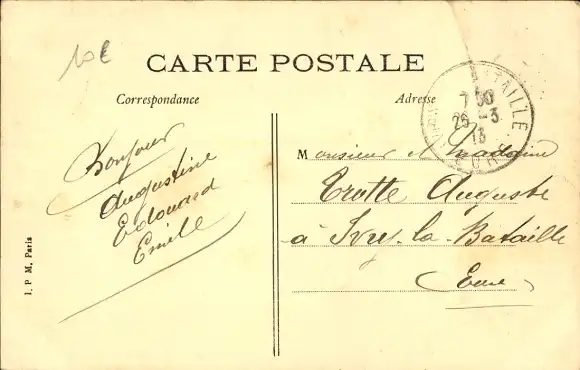 10€
CARTE POSTALE
Correspondance
Adresse
BATAILLE
7 30
26 -3
13
EURE
Bonjour
Augustine
Edouard
Emile
Monsieur & Madame
Trotte Auguste
à Ivry-la-Bataille
Eure
I. P. M. Paris